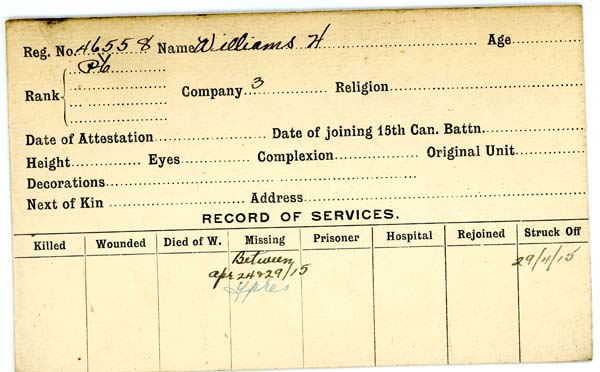 Reg. No. 46558 Name Williams H Age
Pte
Rank Company 3 Religion
Date of Attestation Date of joining 15th Can. Battn.
Height Eyes Complexion Original Unit
Decorations
Next of Kin Address
RECORD OF SERVICES.
Killed Wounded Died of W. Missing Prisoner Hospital Rejoined Struck Off
Between 29/4/15
apr 24&29/15
Ypres